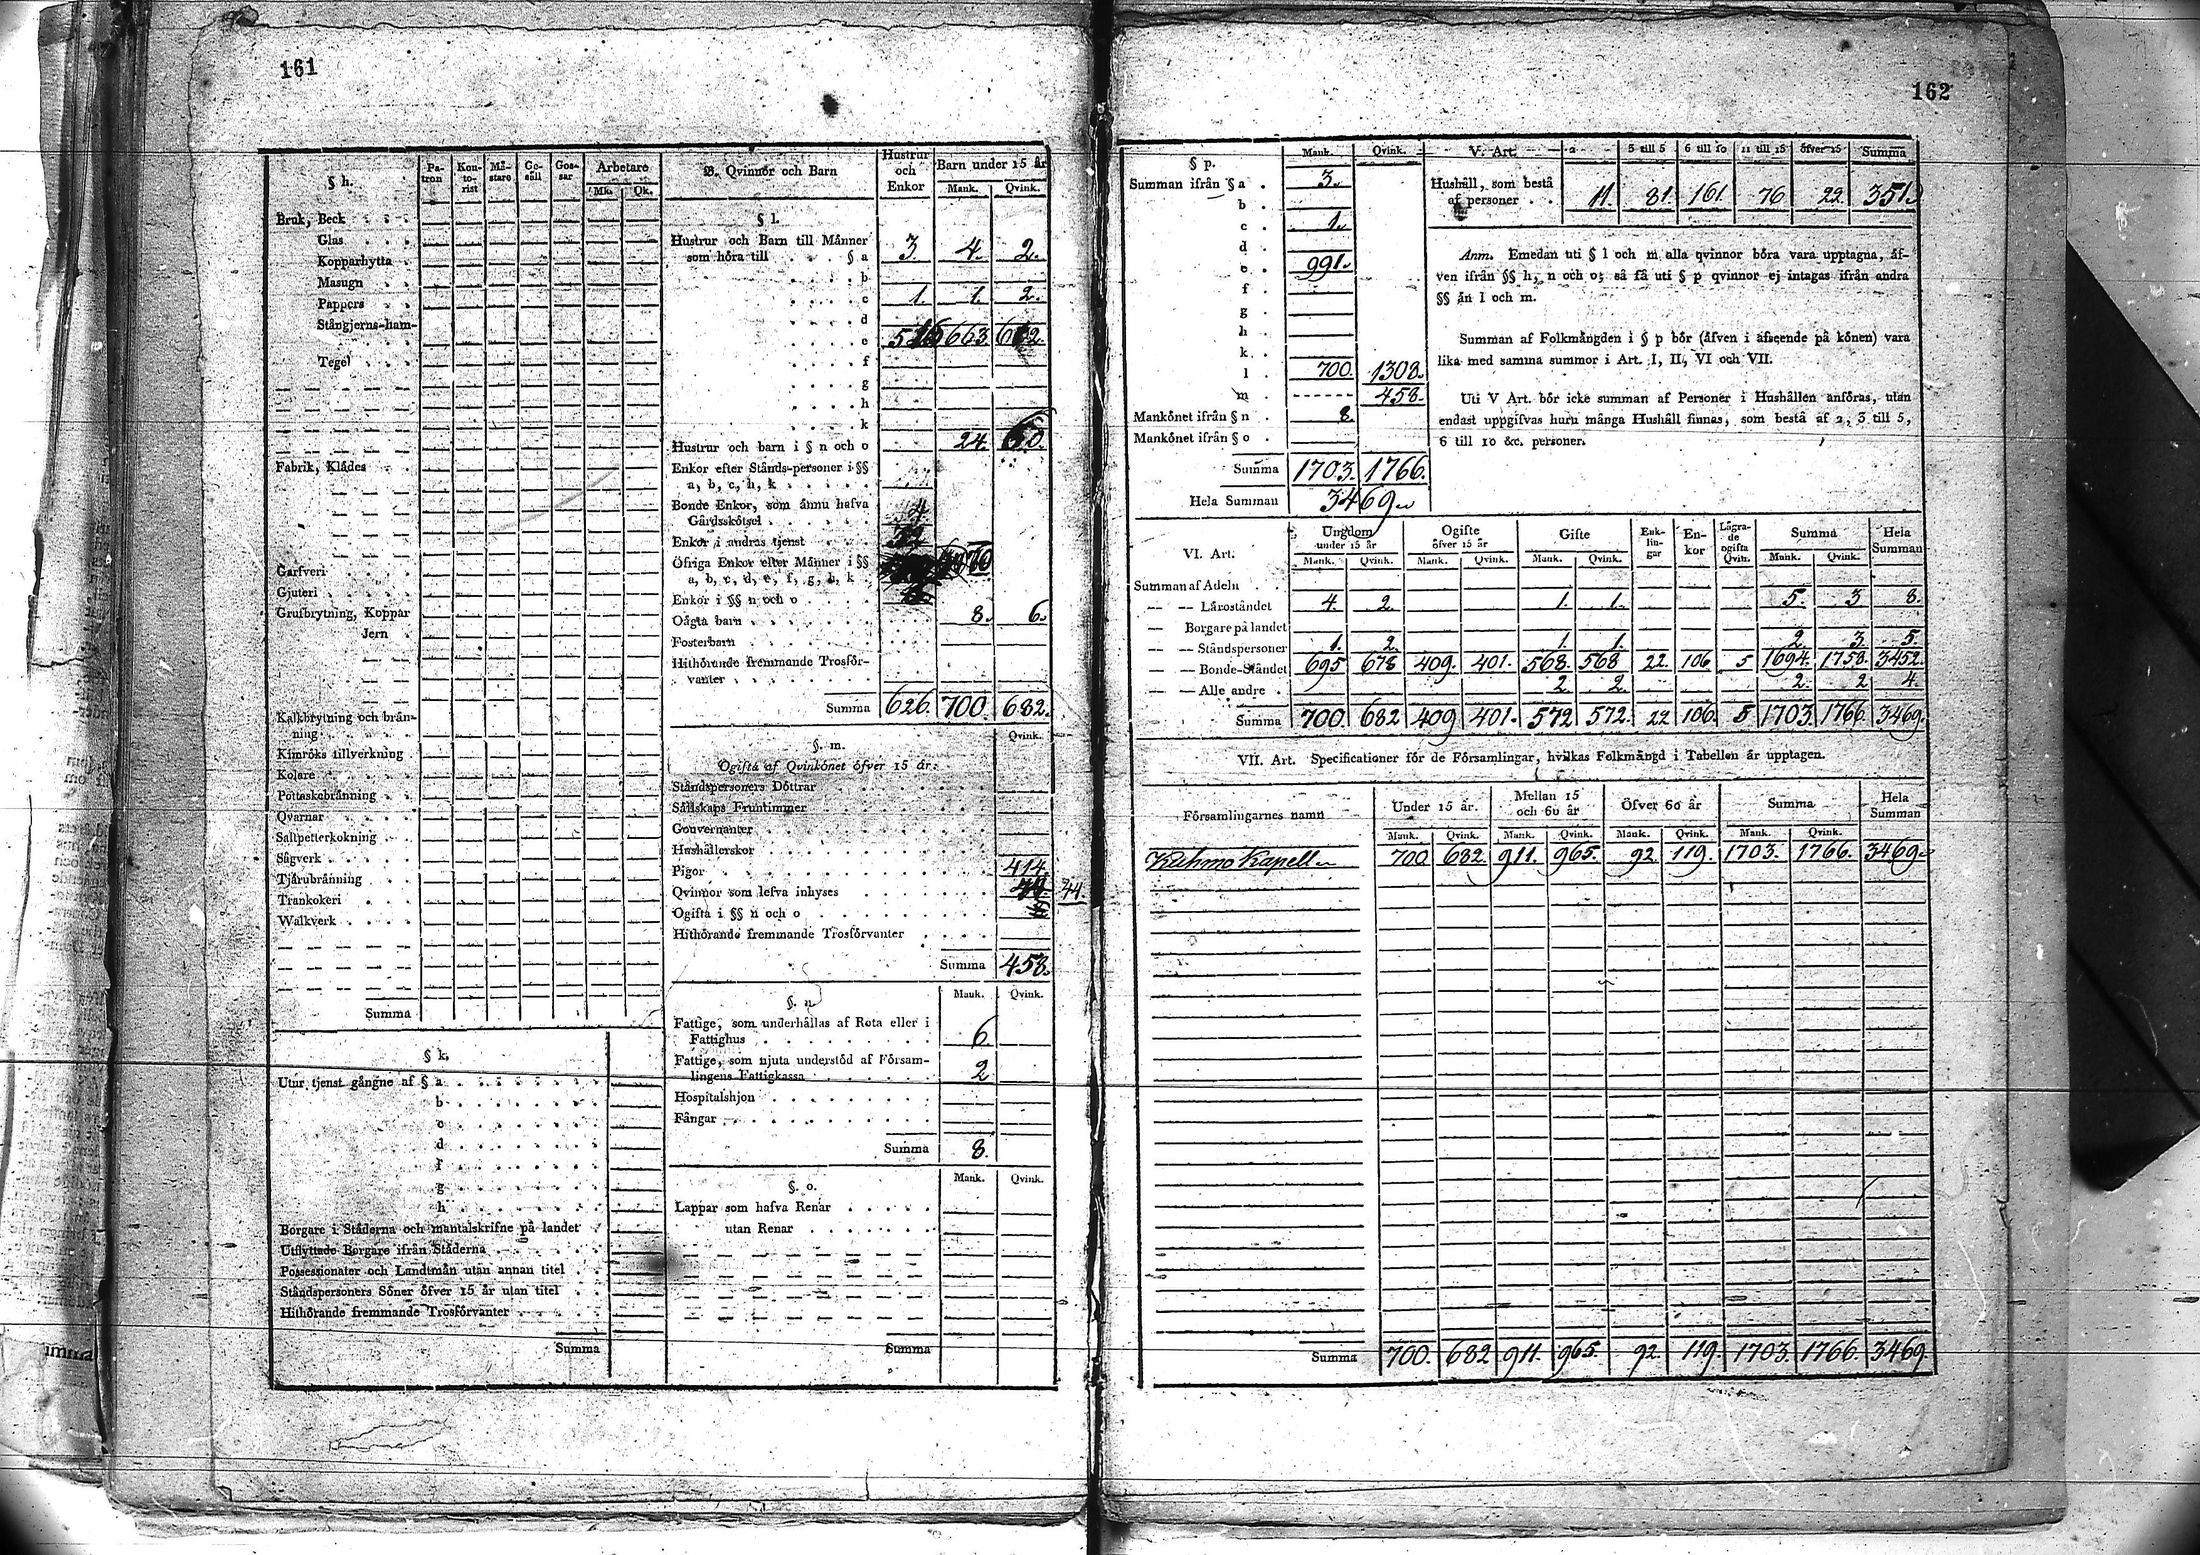 161
§ h.
Pa-tron Kon-to-rist Må-stare Ge-säll Gos-sar Arbetare
Mk. Qk.
Bruk, Beck
Glas
Kopparhytta
Masugn
Pappers
Stångjerns-ham-
Tegel
Fabrik, Klådes
Garfveri
Gjuteri
Grufbrytning, Koppar
Jern
Kalkbrytning och brän-
ning
Kimröks tillverkning
Kolare
Pottaskebränning
Qvarnar
Saltpetterkokning
Sågverk
Tjärubränning
Trankokeri
Walkverk
Summa
§ k.
Utur tjenst gångne af § a
b
c
d
f
g
h
Borgare i Städerna och mantalskrifne på landet
Utflyttade Borgare ifrån Städerna
Possessionater och Landtmän utan annan titel
Ståndspersoners Söner öfver 15 år utan titel
Hithörande fremmande Trosförvanter
Summa
B. Qvinnor och Barn Hustrur och Enkor Barn under 15 år
Mank. Qvink.
§ l.
Hustrur och Barn till Männer
som höra till § a 3. 4. 2.
b
c 1. 1. 2.
d
e 663
f
g
h
k
Hustrur och barn i § n och o 24.
Enkor efter Stånds-personer i §§
a, b, c, h, k
Bonde Enkor, som ännu hafva
Gårdsskötsel 4
Enkor i andras tjenst
Öfriga Enkor efter Männer i §§
a, b, c, d, e, f, g, h, k
Enkor i §§ n och o
Oägta barn 8. 6.
Fosterbarn
Hithörande fremmande Trosför-
vanter
Summa 626. 700. 682.
§. m. Qvink.
Ogifta af Qvinkönet öfver 15 år:
Ståndspersoners Döttrar
Sällskaps Fruntimmer
Gouvernanter
Hushållerskor
Pigor 414.
Qvinnor som lefva inhyses 44.
Ogifta i §§ n och o
Hithörande fremmande Trosförvanter
Summa 458.
§. n Mank. Qvink.
Fattige, som underhållas af Rota eller i
Fattighus 6.
Fattige, som njuta understöd af Försam-
lingens Fattigkassa 2
Hospitalshjon
Fångar
Summa 8.
§. o. Mank. Qvink.
Lappar som hafva Renar
utan Renar
Summa
162
§ p. Mank. Qvink.
Summan ifrån § a 3.
b
c 1.
d
e 991.
f
g
h
k
l 700. 1308.
m 458.
Mankönet ifrån § n 8.
Mankönet ifrån § o
Summa 1703. 1766.
Hela Summan 3469
V. Art. 2 3 till 5 6 till 10 11 till 15 öfver 15 Summa
Hushåll, som bestå
af personer 11. 81. 161. 76 22. 351.
Anm. Emedan uti § l och m alla qvinnor böra vara upptagna, äf-
ven ifrån §§ h, n och o; så få uti § p qvinnor ej intagas ifrån andra
§§ än l och m.
Summan af Folkmängden i § p bör (äfven i afseende på könen) vara
lika med samma summor i Art. I, II, VI och VII.
Uti V Art. bör icke summan af Personer i Hushållen anföras, utan
endast uppgifvas huru många Hushåll finnas, som bestå af 2, 3 till 5,
6 till 10 &c. personer.
VI. Art. Ungdom under 15 år Ogifte öfver 15 år Gifte Enk-lin-gar En-kor Lägra-de ogifta Qvin. Summa Hela Summan
Mank. Qvink. Mank. Qvink. Mank. Qvink. Mank. Qvink.
Summan af Adeln
— — Läroståndet 4. 2. 1. 1. 5. 3 8.
— Borgare på landet
— — Ståndspersoner 1. 2. 1. 1. 2. 3. 5.
— — Bonde-Ståndet 695 678 409. 401. 568. 568 22. 106 5 1694. 1758. 3452.
— — Alle andre 2. 2. 2. 2 4.
Summa 700. 682 409 401. 572 572. 22 106. 5 1703. 1766. 3469.
VII. Art. Specificationer för de Församlingar, hvilkas Folkmängd i Tabellen är upptagen.
Församlingarnes namn Under 15 år. Mellan 15 och 60 år Öfver 60 år Summa Hela Summan
Mank. Qvink. Mank. Qvink. Mank. Qvink. Mank. Qvink.
Kuhmo Kapell 700 682 911. 965. 92 119. 1703. 1766. 3469
Summa 700. 682 911. 965. 92. 119. 1703. 1766. 3469